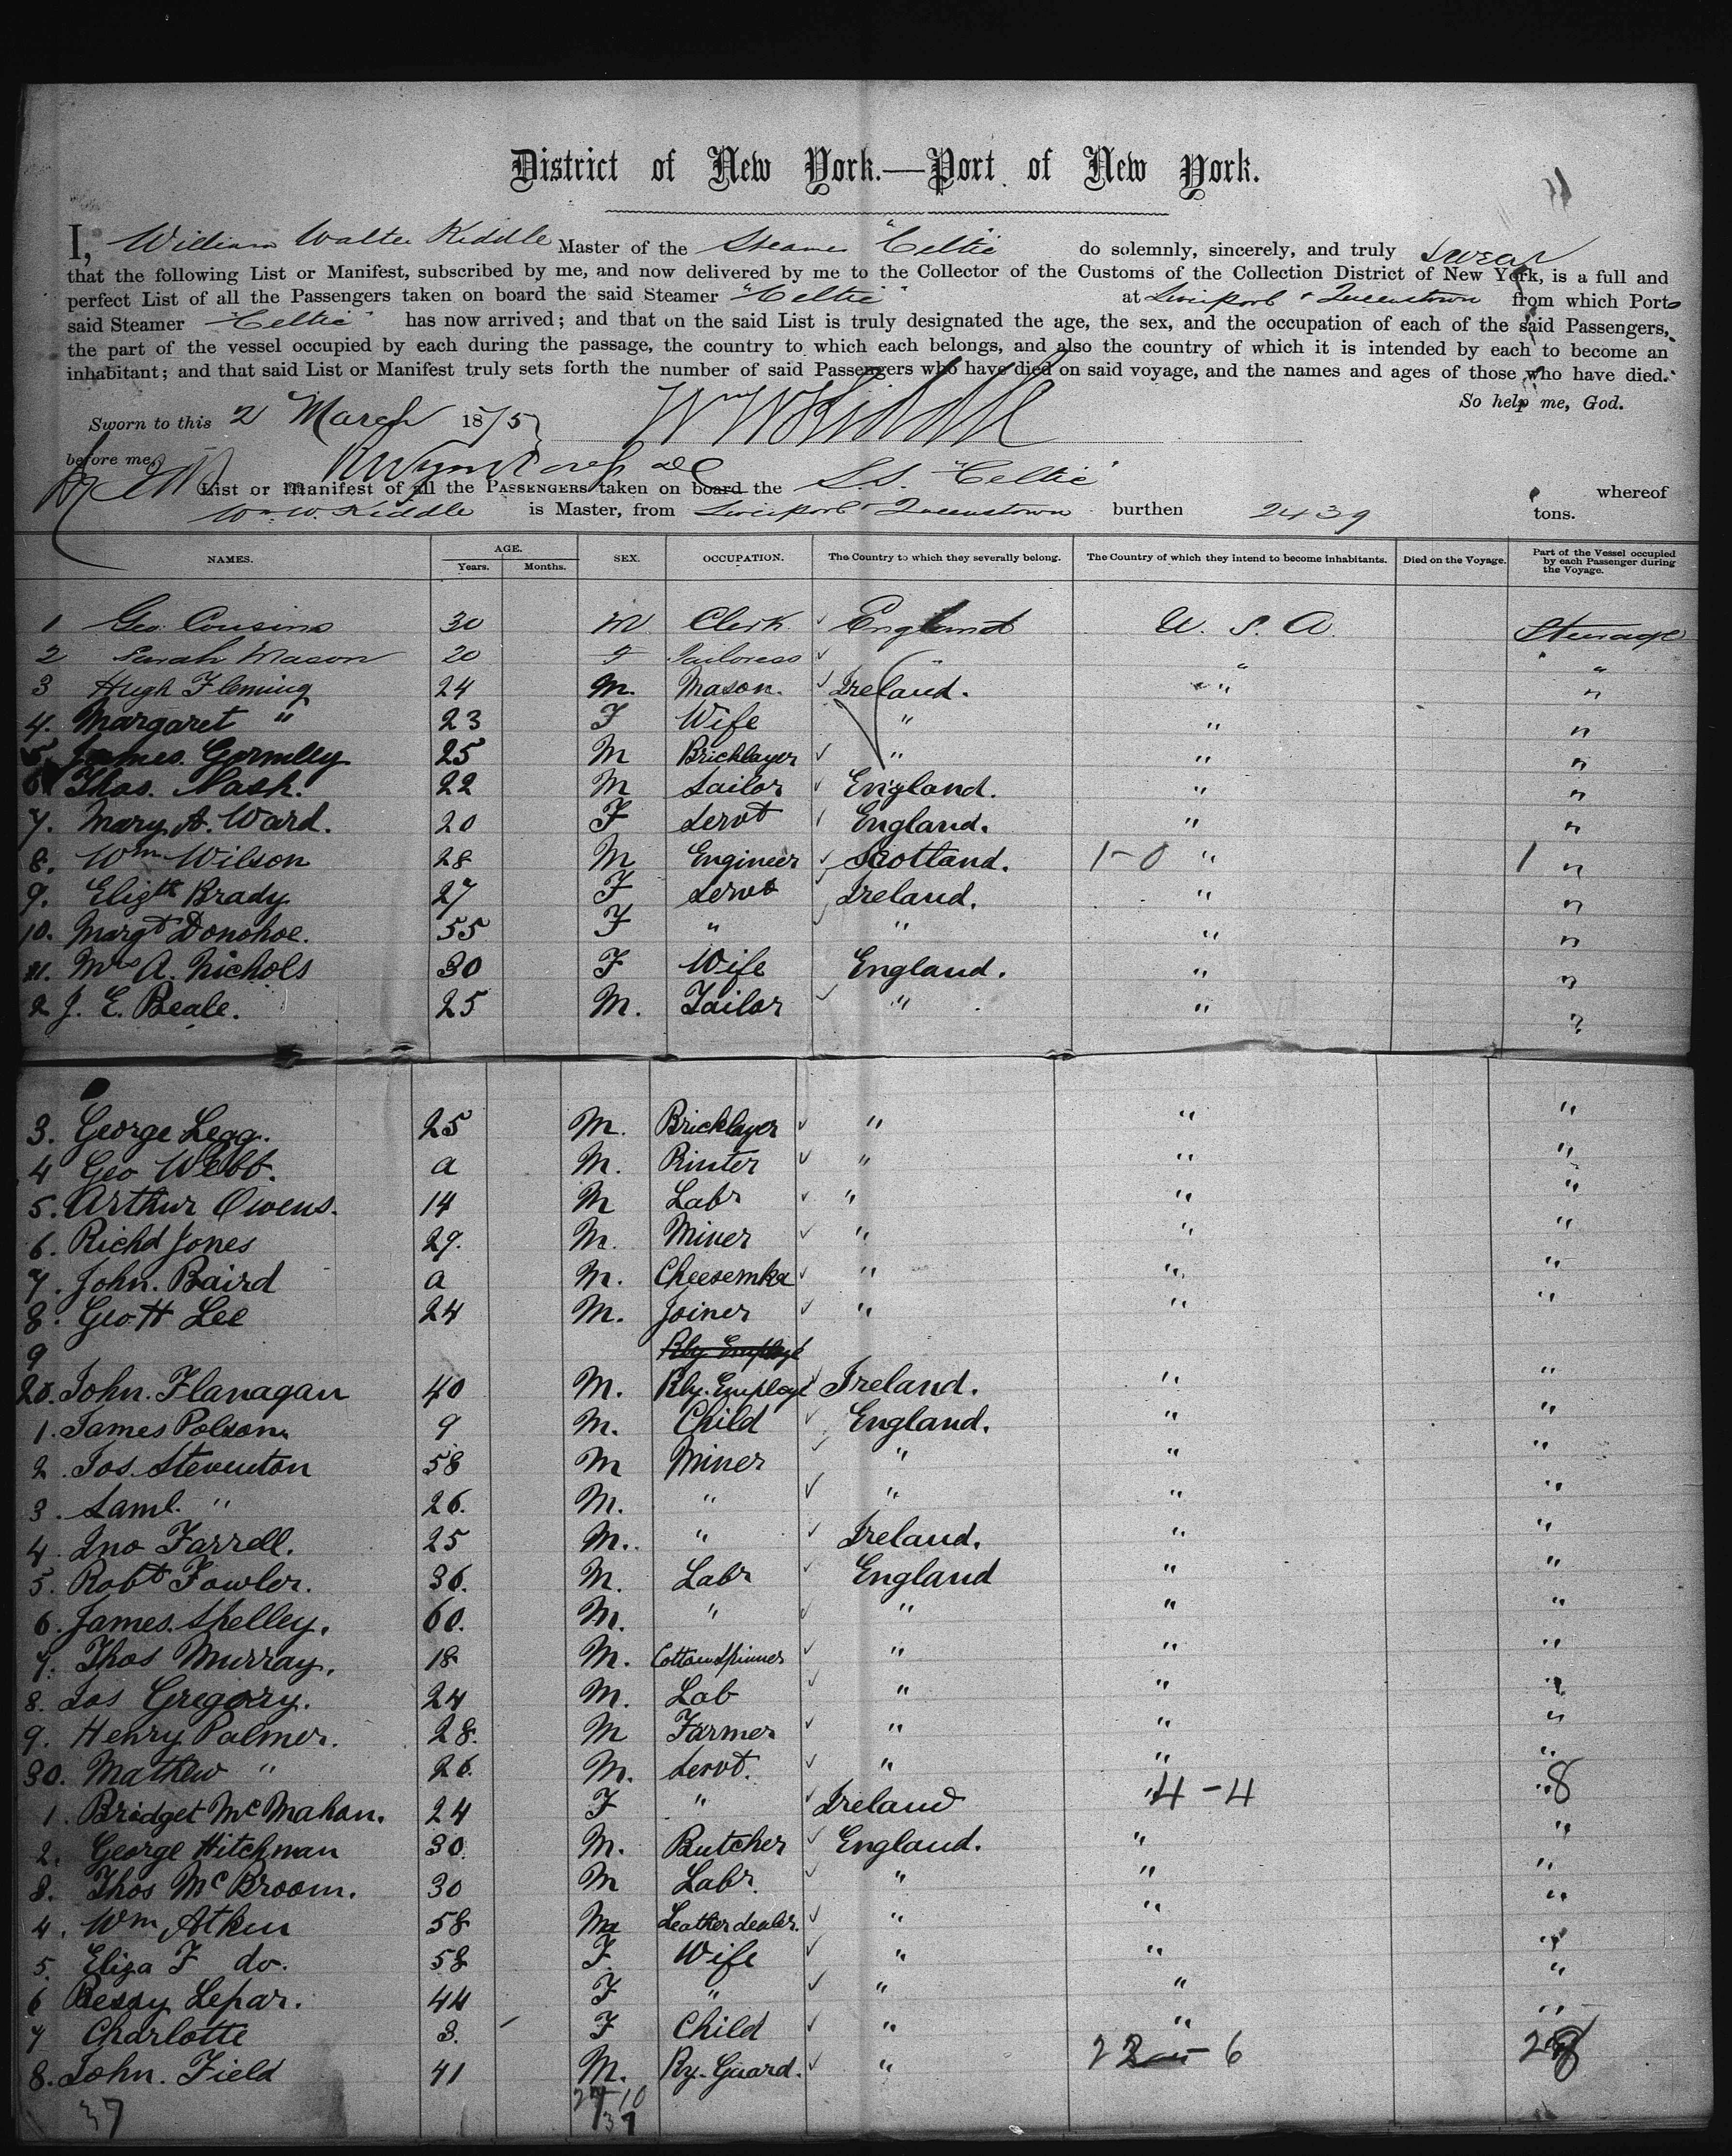 District of New York.—Port of New York.
I, William Walter Kiddle Master of the Steamer "Celtic" do solemnly, sincerely, and truly swear
that the following List or Manifest, subscribed by me, and now delivered by me to the Collector of the Customs of the Collection District of New York, is a full and
perfect List of all the Passengers taken on board the said Steamer "Celtic" at Liverpool & Queenstown from which Ports
said Steamer "Celtic" has now arrived; and that on the said List is truly designated the age, the sex, and the occupation of each of the said Passengers,
the part of the vessel occupied by each during the passage, the country to which each belongs, and also the country of which it is intended by each to become an
inhabitant; and that said List or Manifest truly sets forth the number of said Passengers who have died on said voyage, and the names and ages of those who have died.
So help me, God.
Sworn to this 2 March 1875 Wm W Kiddle
before me,
List or Manifest of all the PASSENGERS taken on board the S.S. "Celtic" whereof
Wm. W. Kiddle is Master, from Liverpool & Queenstown burthen 2439 tons.
NAMES. AGE. Years. Months. SEX. OCCUPATION. The Country to which they severally belong. The Country of which they intend to become inhabitants. Died on the Voyage. Part of the Vessel occupied by each Passenger during the Voyage.
1 Geo. Cousins 30 M Clerk England U. S. A. Steerage
2 Sarah Mason 20 F Tailoress " " "
3 Hugh Fleming 24 M. Mason. Ireland. " "
4. Margaret " 23 F Wife " " "
5. James. Gormlley 25 M Bricklayer " " "
6. Thos. Nash. 22 M Sailor England. " "
7. Mary A. Ward. 20 F Servt England. " "
8. Wm Wilson 28 M Engineer Scotland. 1-0 " 1 "
9. Elizth Brady 27 F Servt Ireland. " "
10. Margt Donohoe. 55 F " " " "
11. Mrs A. Nichols 30 F Wife England. " "
2 J. E. Beale. 25 M. Tailor " " "
3. George Legg. 25 M. Bricklayer " " "
4 Geo Webb. a M. Printer " " "
5. Arthur Owens. 14 M Labr " " "
6. Richd Jones 29. M. Miner " " "
7. John. Baird a M. Cheesemka " " "
8. Geo H Lee 24 M. Joiner " " "
9 Rly Employé
20. John. Flanagan 40 M. Rly. Employé Ireland. " "
1. James Polson. 9 M. Child England. " "
2. Jos. Steventon 58 M Miner " " "
3. Saml. " 26. M. " " " "
4. Jno Farrell. 25 M. " Ireland. " "
5. Robt Fowler. 36. M. Labr England " "
6. James. Shelley. 60. M. " " " "
7. Thos Murray. 18 M. Cottonspinner " " "
8. Jos Gregory. 24 M. Lab " " "
9. Henry Palmer. 28. M Farmer " " "
30. Mathew " 26. M. Servt. " " "
1. Bridget McMahon. 24 F " Ireland " 4-4 " 8
2. George Hitchman 30. M. Butcher England. " "
3. Thos McBroom. 30 M Labr. " " "
4. Wm Atkin 58 M Leather dealer. " " "
5. Eliza F do. 58 F. Wife " " "
6 Bessy Lepar. 44 F " " " "
7 Charlotte 3. F Child " " "
8. John. Field 41 M. Ry. Guard. " 22 - 6 28
27 10
37 37